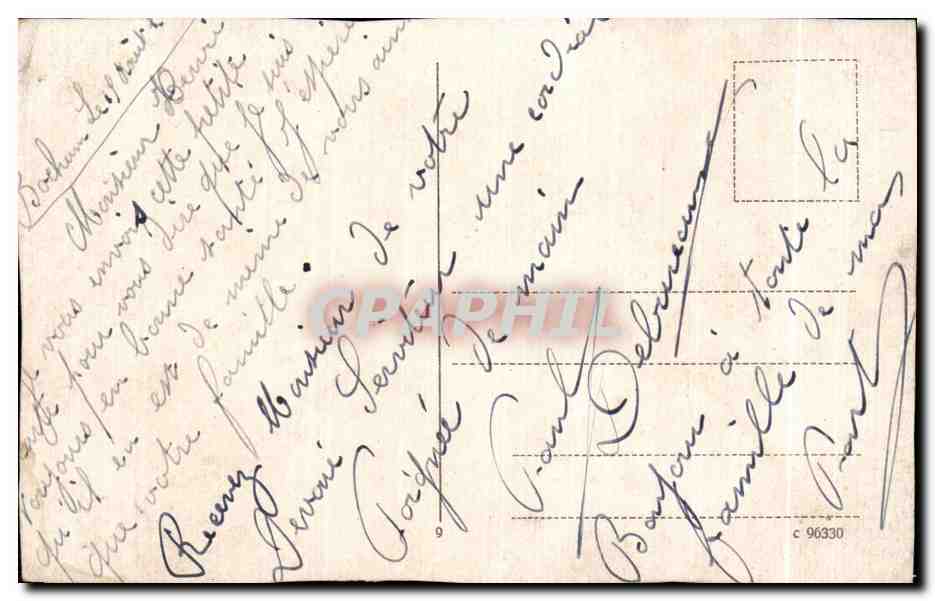 Bochum Le
Monsieur Henri
Je vous envois cette petite
carte pour vous dire que je suis
toujours en bonne santé J'espère
qu'il en est de même de vous ainsi
que votre famille
Recevez Monsieur de votre
Devoué Serviteur une cordia
Poignée de main
Paul Delruean
Bonjour à toute la
famille de ma
Part
CPAPHIL
9
c 96330